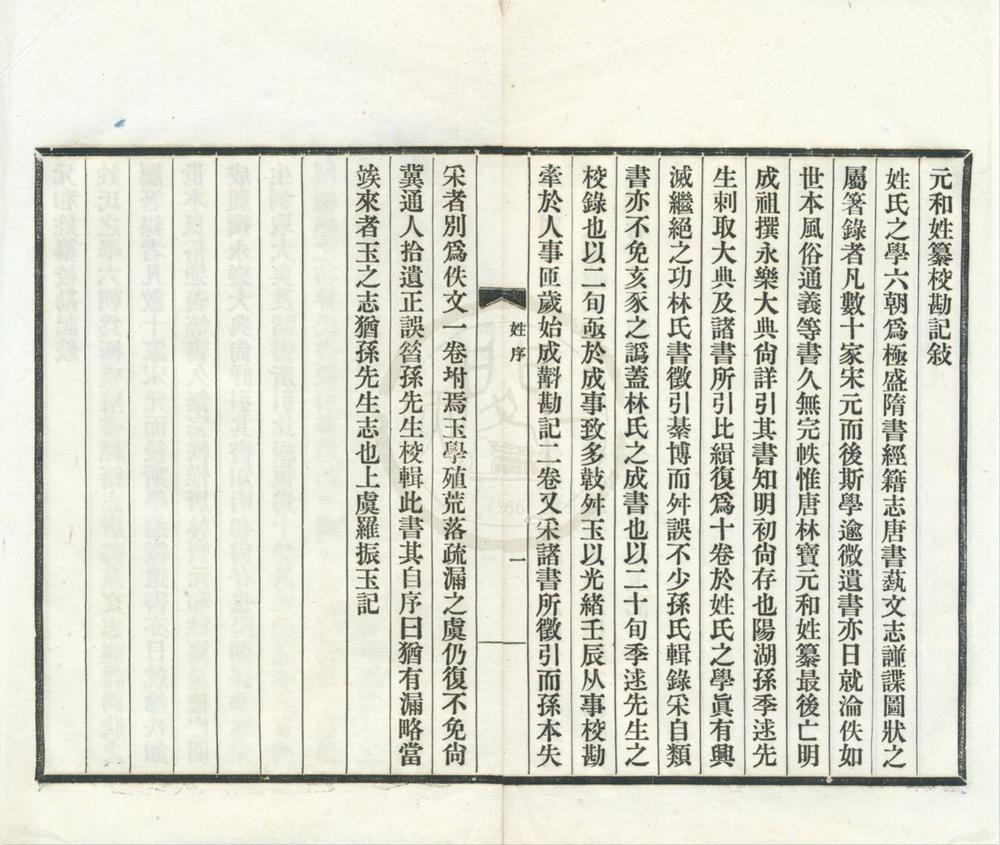 元和姓纂校勘記敍
姓氏之學六朝爲極盛隋書經籍志唐書藝文志譜諜圖狀之
屬箸錄者凡數十家宋元而後斯學逾微遺書亦日就淪佚如
世本風俗通義等書久無完帙惟唐林寶元和姓纂最後亡明
成祖撰永樂大典尙詳引其書知明初尙存也陽湖孫季逑先
生剌取大典及諸書所引比緝復爲十卷於姓氏之學眞有興
滅繼絕之功林氏書徵引綦博而舛誤不少孫氏輯錄宋自類
書亦不免亥豕之譌蓋林氏之成書也以二十旬季逑先生之
校錄也以二旬亟於成事致多敼舛玉以光緖壬辰从事校勘
牽於人事匝歲始成斠勘記二卷又采諸書所徵引而孫本失
姓序
一
采者別爲佚文一卷坿焉玉學殖荒落疏漏之虞仍復不免尙
冀通人拾遺正誤昝孫先生校輯此書其自序曰猶有漏略當
竢來者玉之志猶孫先生志也上虞羅振玉記